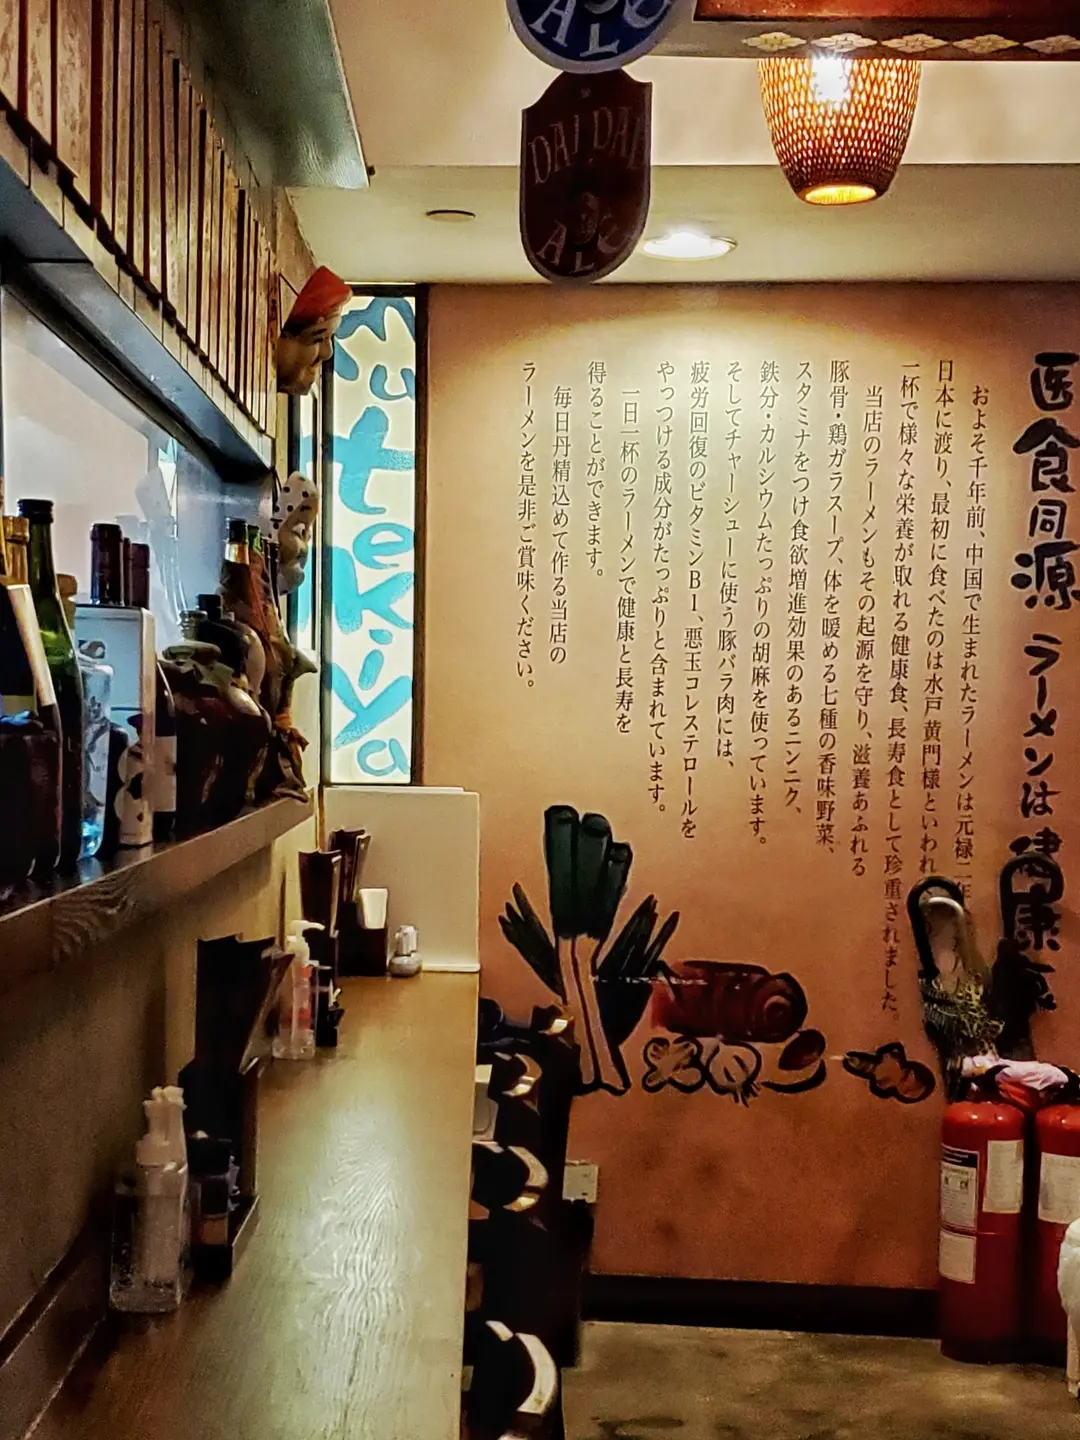 医食同源 ラーメンは健康食
およそ千年前、中国で生まれたラーメンは元禄二年
日本に渡り、最初に食べたのは水戸黄門様といわれ
一杯で様々な栄養が取れる健康食、長寿食として珍重されました。
当店のラーメンもその起源を守り、滋養あふれる
豚骨・鶏ガラスープ、体を暖める七種の香味野菜、
スタミナをつけ食欲増進効果のあるニンニク、
鉄分・カルシウムたっぷりの胡麻を使っています。
そしてチャーシューに使う豚バラ肉には、
疲労回復のビタミンB1、悪玉コレステロールを
やっつける成分がたっぷりと含まれています。
一日一杯のラーメンで健康と長寿を
得ることができます。
毎日丹精込めて作る当店の
ラーメンを是非ご賞味ください。
Mutekiya
DAI DAI